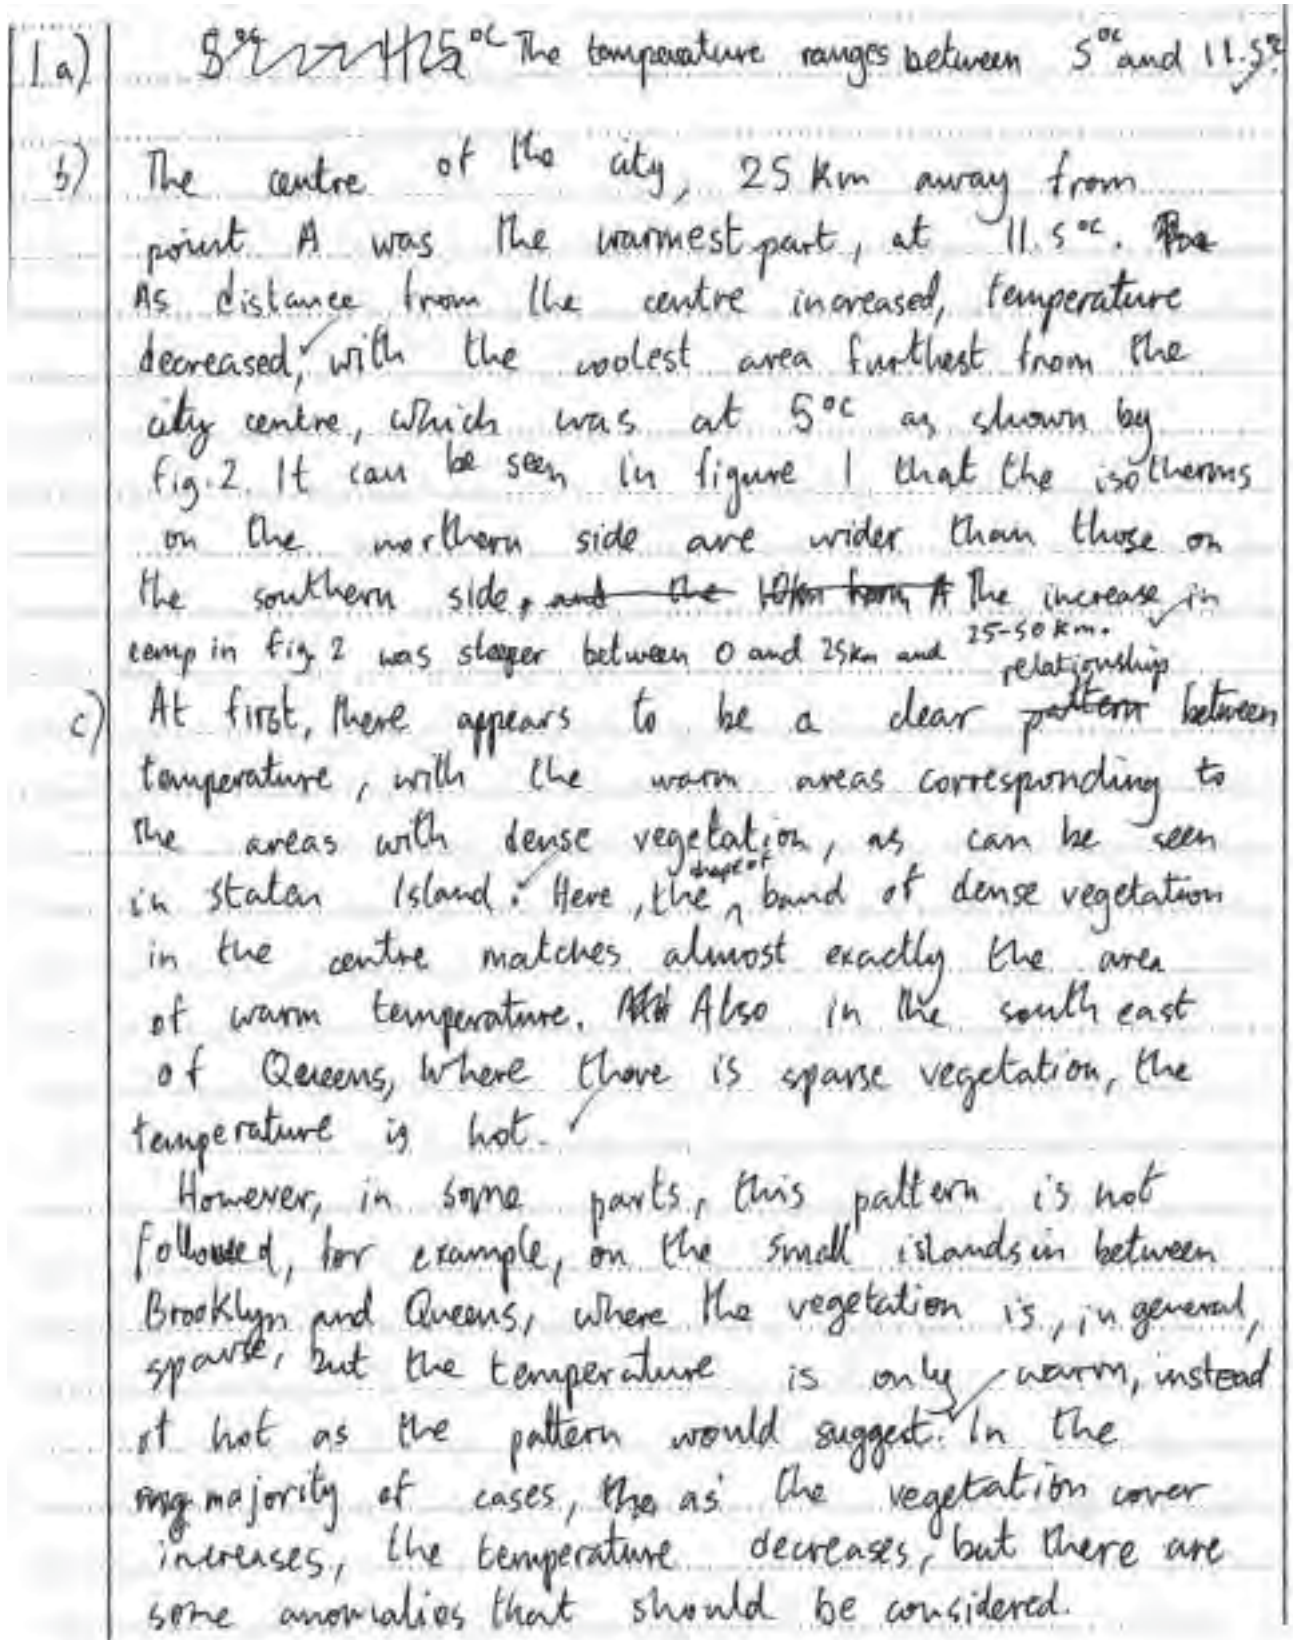 1.a) 5°C 11.5°C The temperature ranges between 5°C and 11.5°C
b) The centre of the city, 25 Km away from
point A was the warmest part, at 11.5°C. The
As distance from the centre increased, temperature
decreased, with the coolest area furthest from the
city centre, which was at 5°C as shown by
Fig. 2. It can be seen in figure 1 that the isotherms
on the northern side are wider than those on
the southern side, and the 10km from A The increase in
temp in Fig. 2 was steeper between 0 and 25km and 25-50 Km.
relationship
c) At first, there appears to be a clear pattern between
temperature, with the warm areas corresponding to
the areas with dense vegetation, as can be seen
in Staten Island. Here, the shape of band of dense vegetation
in the centre matches almost exactly the area
of warm temperature. Also in the south east
of Queens, where there is sparse vegetation, the
temperature is hot.
However, in some parts, this pattern is not
followed, for example, on the small islands in between
Brooklyn and Queens, where the vegetation is, in general,
sparse, but the temperature is only warm, instead
of hot as the pattern would suggest. In the
majority of cases, the as the vegetation cover
increases, the temperature decreases, but there are
some anomalies that should be considered.